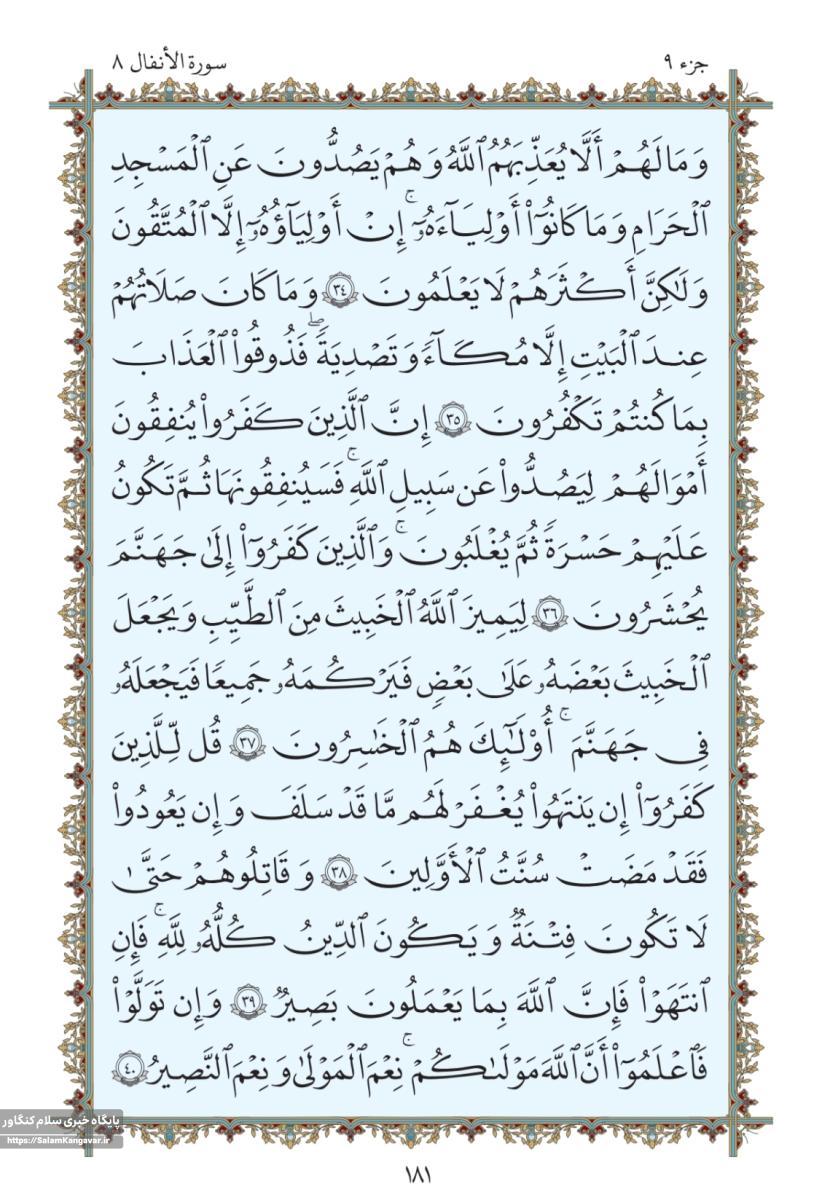 جزء ۹
سورة الأنفال ۸
وَمَا لَهُمْ أَلَّا يُعَذِّبَهُمُ ٱللَّهُ وَهُمْ يَصُدُّونَ عَنِ ٱلْمَسْجِدِ
ٱلْحَرَامِ وَمَا كَانُوٓا۟ أَوْلِيَآءَهُۥٓ ۚ إِنْ أَوْلِيَآؤُهُۥٓ إِلَّا ٱلْمُتَّقُونَ
وَلَـٰكِنَّ أَكْثَرَهُمْ لَا يَعْلَمُونَ ﴿٣٤﴾ وَمَا كَانَ صَلَاتُهُمْ
عِندَ ٱلْبَيْتِ إِلَّا مُكَآءً وَتَصْدِيَةً ۖ فَذُوقُوا۟ ٱلْعَذَابَ
بِمَا كُنتُمْ تَكْفُرُونَ ﴿٣٥﴾ إِنَّ ٱلَّذِينَ كَفَرُوا۟ يُنفِقُونَ
أَمْوَالَهُمْ لِيَصُدُّوا۟ عَن سَبِيلِ ٱللَّهِ ۚ فَسَيُنفِقُونَهَا ثُمَّ تَكُونُ
عَلَيْهِمْ حَسْرَةً ثُمَّ يُغْلَبُونَ ۚ وَٱلَّذِينَ كَفَرُوٓا۟ إِلَىٰ جَهَنَّمَ
يُحْشَرُونَ ﴿٣٦﴾ لِيَمِيزَ ٱللَّهُ ٱلْخَبِيثَ مِنَ ٱلطَّيِّبِ وَيَجْعَلَ
ٱلْخَبِيثَ بَعْضَهُۥ عَلَىٰ بَعْضٍ فَيَرْكُمَهُۥ جَمِيعًا فَيَجْعَلَهُۥ
فِى جَهَنَّمَ ۚ أُو۟لَـٰٓئِكَ هُمُ ٱلْخَاسِرُونَ ﴿٣٧﴾ قُل لِّلَّذِينَ
كَفَرُوٓا۟ إِن يَنتَهُوا۟ يُغْفَرْ لَهُم مَّا قَدْ سَلَفَ وَإِن يَعُودُوا۟
فَقَدْ مَضَتْ سُنَّتُ ٱلْأَوَّلِينَ ﴿٣٨﴾ وَقَاتِلُوهُمْ حَتَّىٰ
لَا تَكُونَ فِتْنَةٌ وَيَكُونَ ٱلدِّينُ كُلُّهُۥ لِلَّهِ ۚ فَإِنِ
ٱنتَهَوْا۟ فَإِنَّ ٱللَّهَ بِمَا يَعْمَلُونَ بَصِيرٌ ﴿٣٩﴾ وَإِن تَوَلَّوْا۟
فَٱعْلَمُوٓا۟ أَنَّ ٱللَّهَ مَوْلَىٰكُمْ ۚ نِعْمَ ٱلْمَوْلَىٰ وَنِعْمَ ٱلنَّصِيرُ ﴿٤٠﴾
پایگاه خبری سلام کنگاور
https://SalamKangavar.ir
۱۸۱